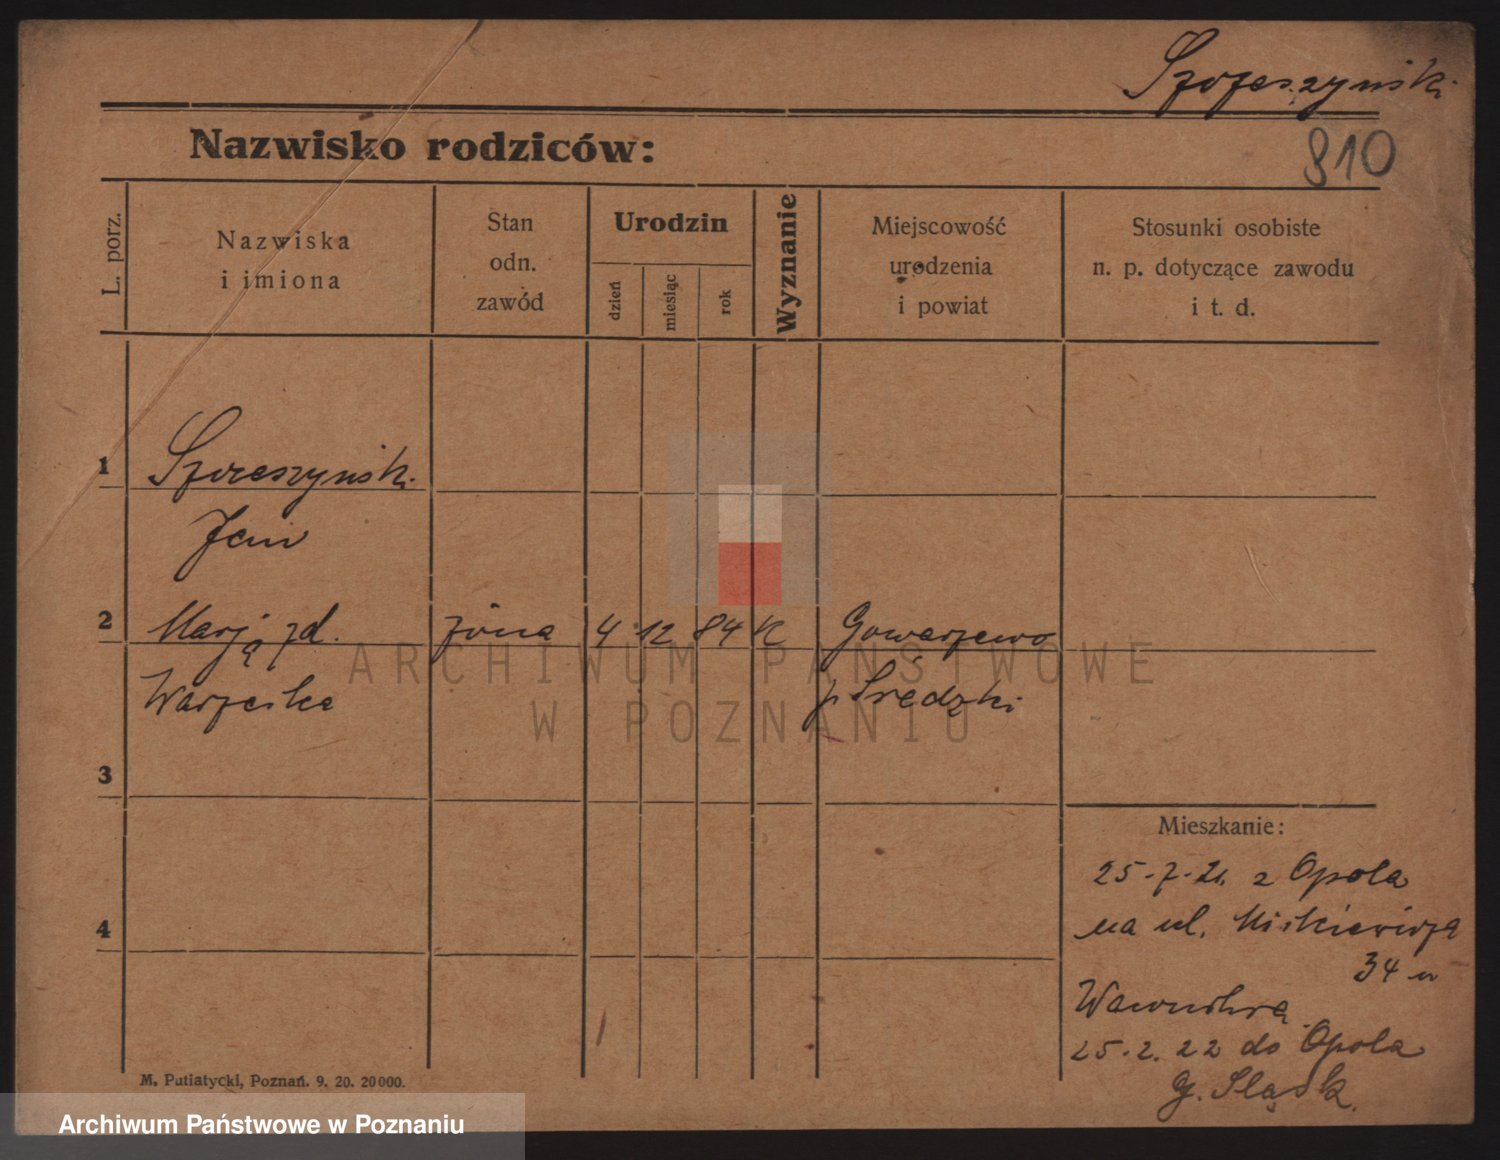 810
Nazwisko rodziców:
L. porz.
Nazwiska
i imiona
Stan
odn.
zawód
Urodzin
dzień
miesiąc
rok
Wyznanie
Miejscowość
urodzenia
i powiat
Stosunki osobiste
n. p. dotyczące zawodu
i t. d.
1
Jan
2 Marją zd. żona 4 12 84 K Gowarzewo
p Średzki
3
Mieszkanie:
25-7-21. z Opola
na ul.
4
34 u
25-2. 22 do Opola
G. Śląsk.
M. Putiatycki, Poznań. 9. 20. 20000.
ARCHIWUM PAŃSTWOWE
W POZNANIU
Archiwum Państwowe w Poznaniu